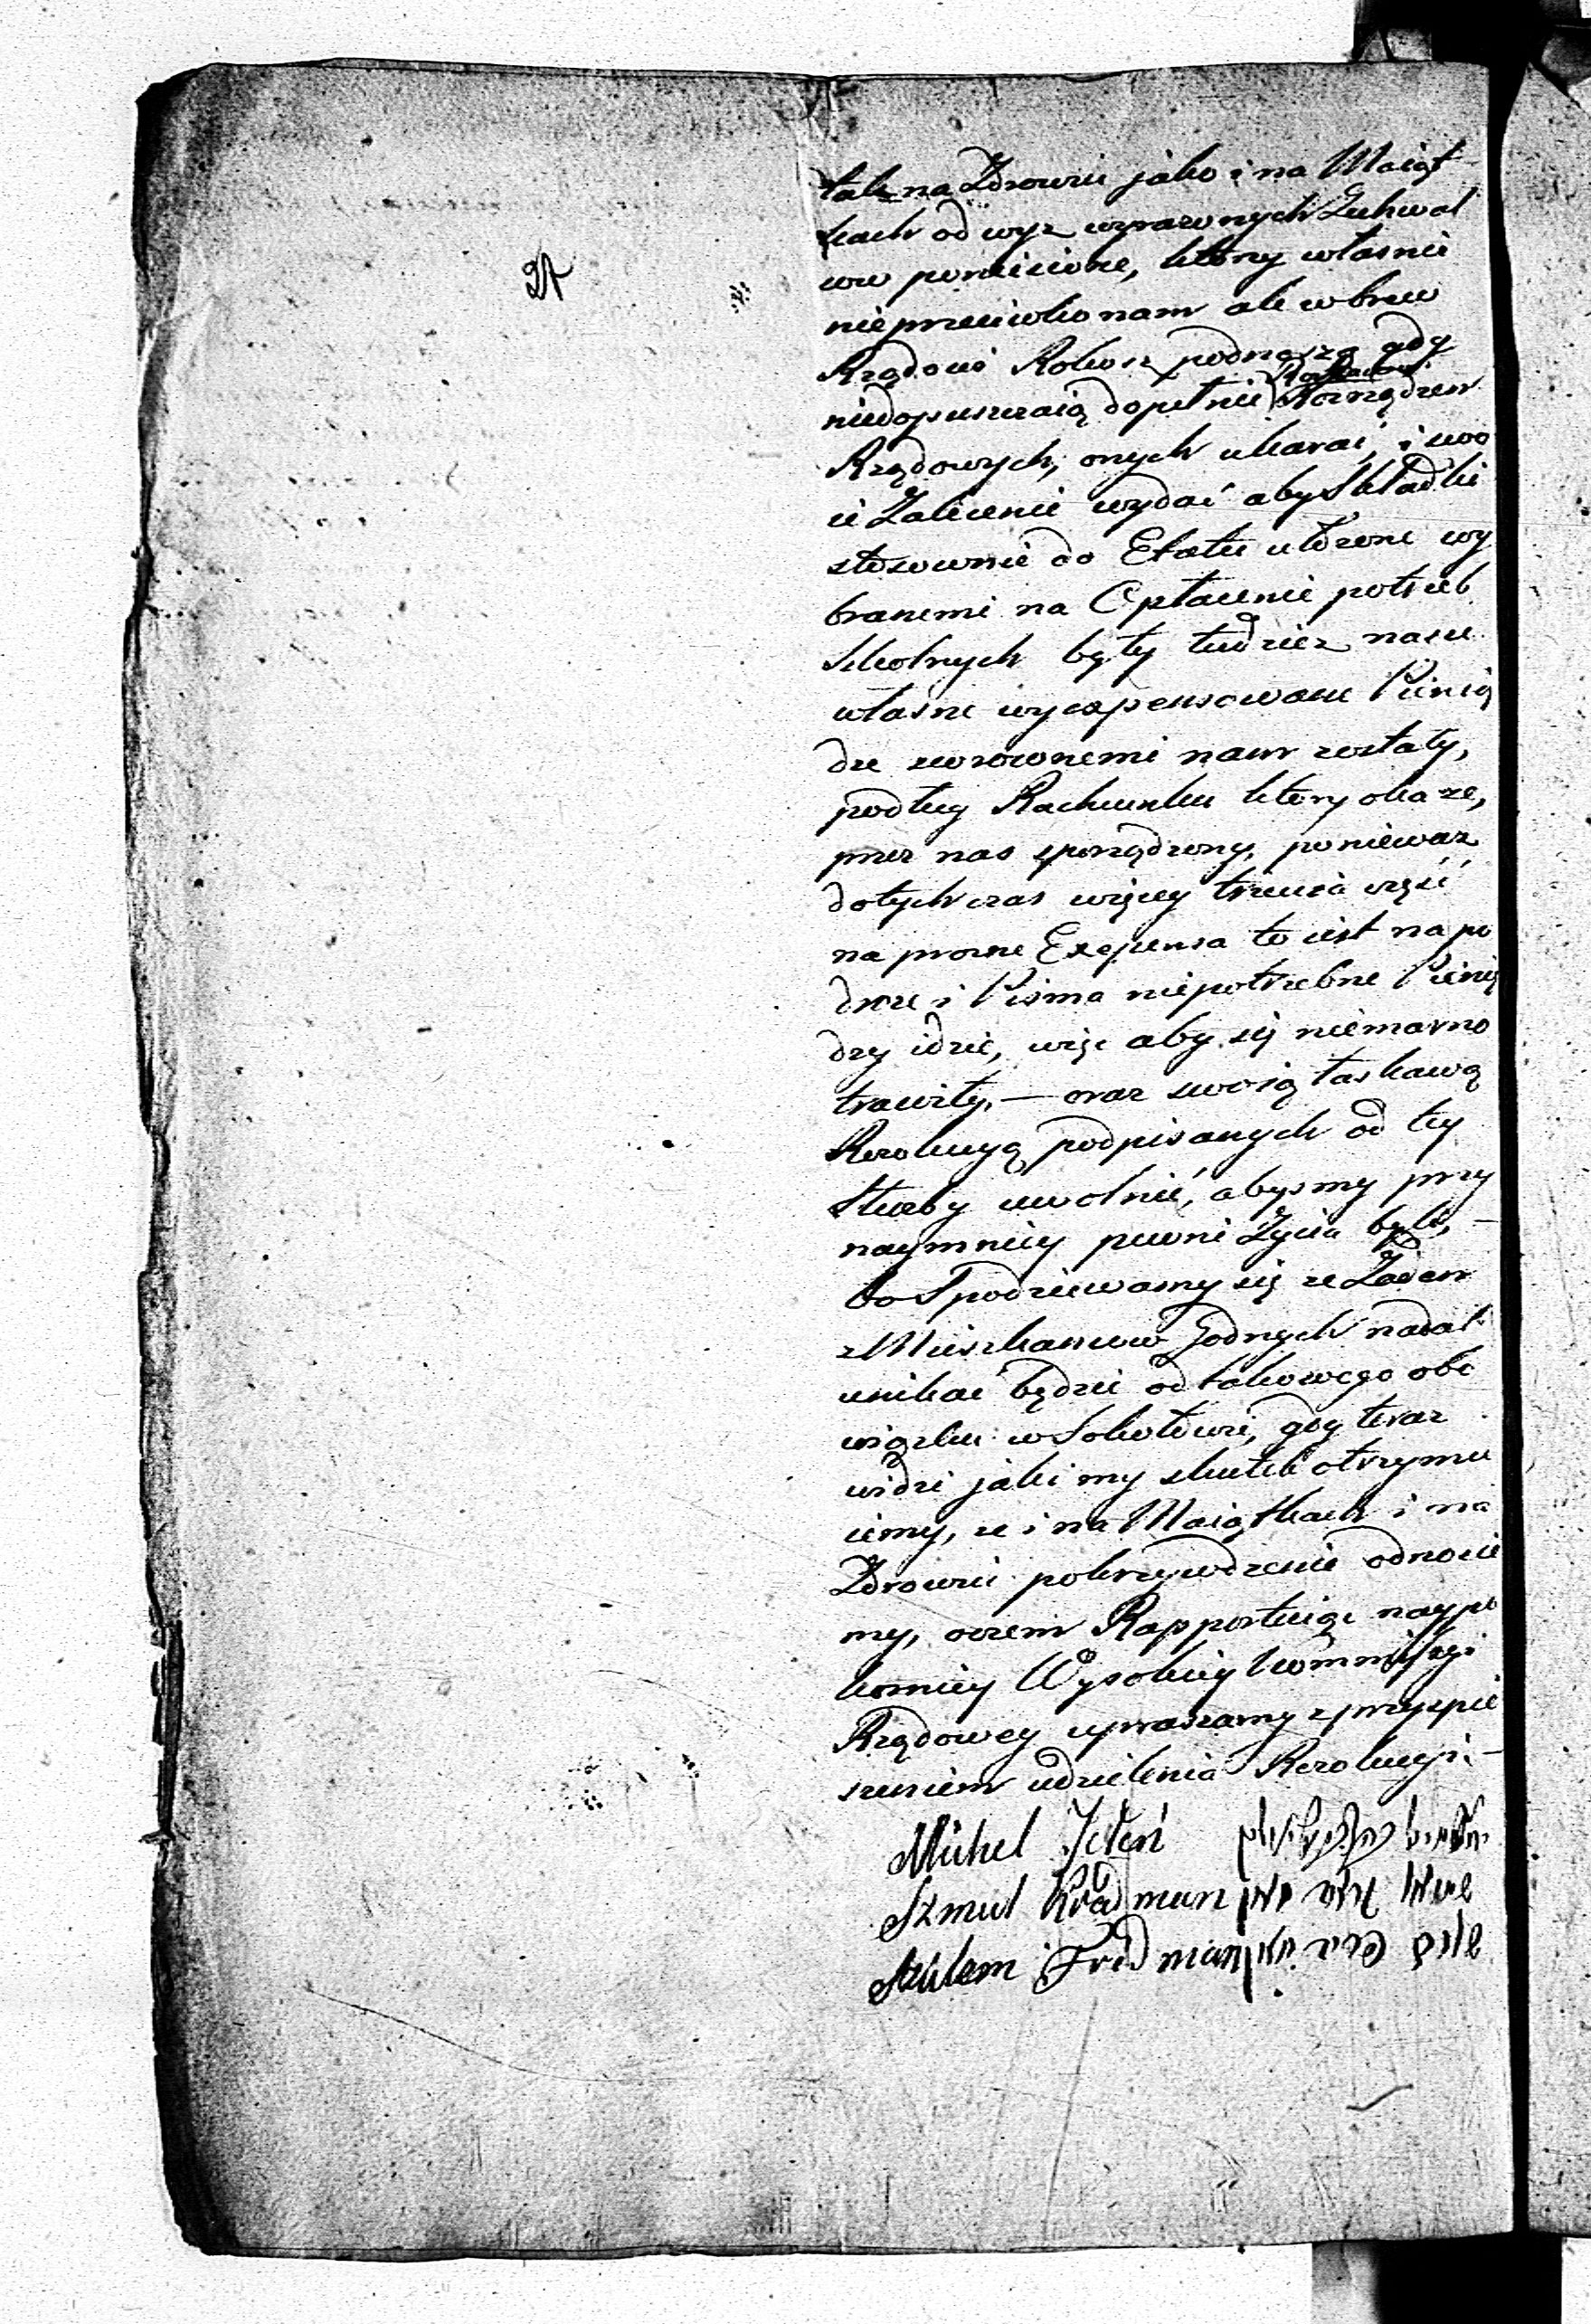 tak na Zdrowiu jako i na Maiąt
kach od wyz wyrazonych Zuchwal
cow poniesione, ktory własnie
nieprzeciwko nam ale wbrew
Rządowi Rokosz podnoszą gdy
niedopuszczaią dopełnić Rozrządzen
Rządowych, onych ukarać, i swo
ie Zalecenie wydać aby Składki
stosownie do Etatu ułozone wy
branemi na Opłacenie potrzeb
Szkolnych były tudziez nasze
własne wyexpensowane Pienią
dze zwroconemi nam zostały,
podług Rachunku ktory okaze,
przez nas sporządzony, poniewaz
dotychczas więcey trzecia część
na prozne Expensa to iest na po
droze i Pisma niepotrzebne Pienię
dzy idzie, więc aby się niemarno
trawiły, — oraz swoią łaskawą
Rezolucyą podpisanych od tey
Słuzby uwolnić, abysmy przy
naymniey pewni Zycia byli, —
bo Spodziewamy się ze Zaden
z Mieszkancow Godnych nadal
unikać będzie od takowego obo
wiązku w Sokołowie, gdy teraz
widzi jaki my skutek otrzymu
iemy, ze i na Maiątkach i na
Zdrowiu pokrzywdzenie odnosie
my, oczem Rapportuiąc naypo
korniey Wysokiey Kommissyi
Rządowey upraszamy z przyspie
szeniem udzielenia Rezolucyi. —
Michel Jeleń
Szmul Rodman
Szulem Fridman